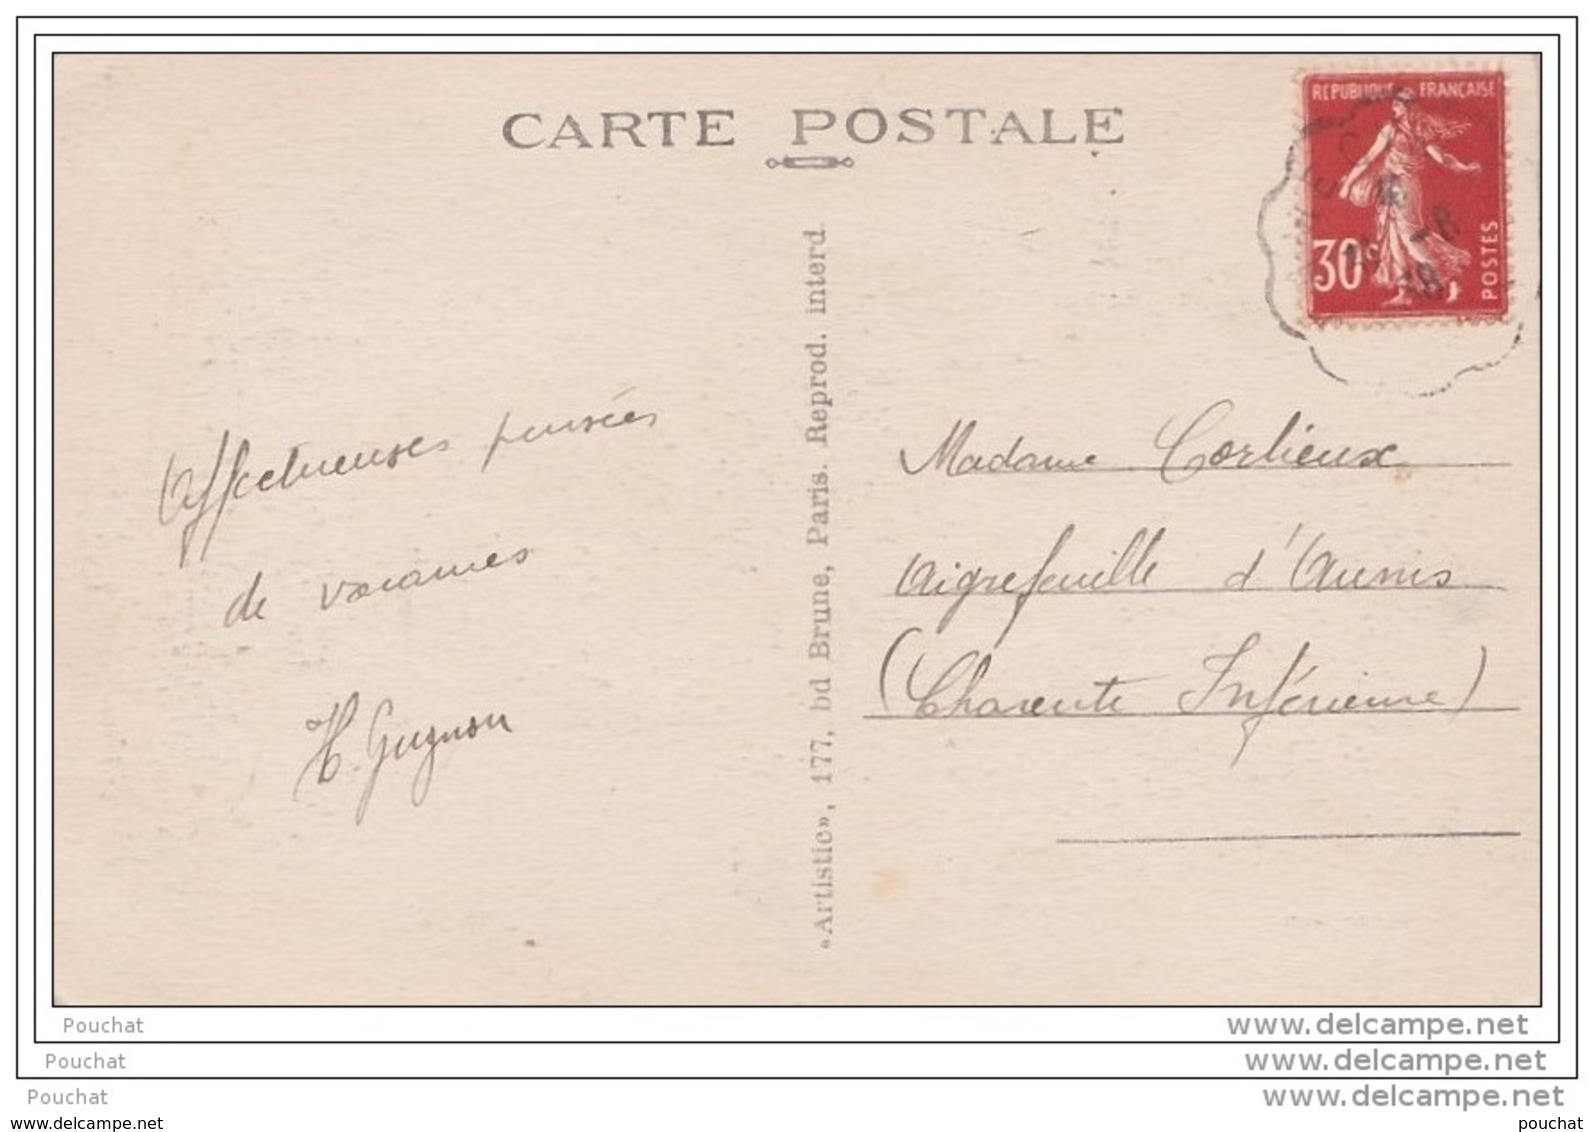 CARTE POSTALE
REPUBLIQUE FRANÇAISE
30c
POSTES
Affectueuses pensées
de vacances
H. Gugnon
«Artistic», 177, bd Brune, Paris. Reprod. interd.
Madame Corlieux
Aigrefeuille d'Aunis
(Charente Inférieure)
Pouchat www.delcampe.net
Pouchat www.delcampe.net
Pouchat www.delcampe.net
www.delcampe.net pouchat